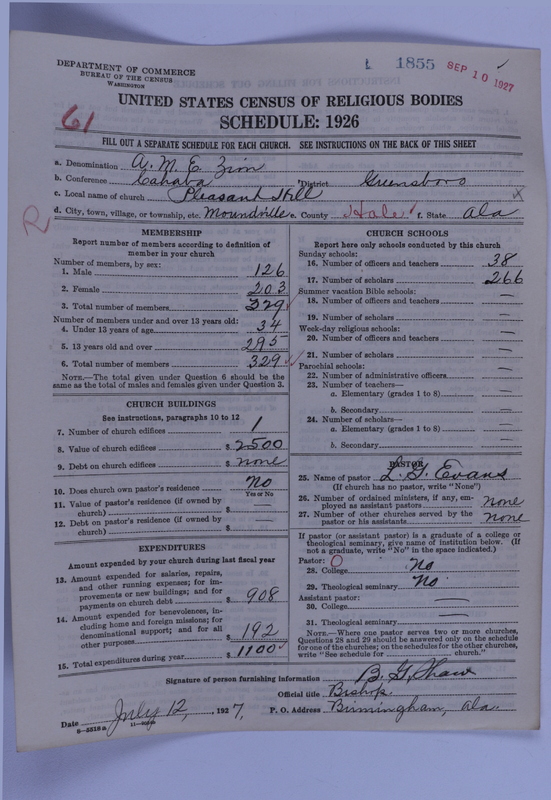 1855 SEP 10 1927
DEPARTMENT OF COMMERCE
BUREAU OF THE CENSUS
WASHINGTON
UNITED STATES CENSUS OF RELIGIOUS BODIES
61
SCHEDULE: 1926
FILL OUT A SEPARATE SCHEDULE FOR EACH CHURCH. SEE INSTRUCTIONS ON THE BACK OF THIS SHEET
a. Denomination A. M. E. Zion
b. Conference Cahaba District Greensboro
c. Local name of church Pleasant Hill x
R
d. City, town, village, or township, etc. Moundville e. County Hale f. State Ala
MEMBERSHIP
Report number of members according to definition of
member in your church
Number of members, by sex:
1. Male 126
2. Female 203
3. Total number of members 329
Number of members under and over 13 years old:
4. Under 13 years of age 34
5. 13 years old and over 295
6. Total number of members 329
NOTE.—The total given under Question 6 should be
same as the total of males and females given under Question 3.
CHURCH BUILDINGS
See instructions, paragraphs 10 to 12
7. Number of church edifices 1
8. Value of church edifices $ 2500
9. Debt on church edifices $ none
10. Does church own pastor's residence No
Yes or No
11. Value of pastor's residence (if owned by
church) $ —
12. Debt on pastor's residence (if owned by
church) $ —
EXPENDITURES
Amount expended by your church during last fiscal year
13. Amount expended for salaries, repairs,
and other running expenses; for im-
provements or new buildings; and for
payments on church debt $ 908
14. Amount expended for benevolences, in-
cluding home and foreign missions; for
denominational support; and for all
other purposes $ 192
15. Total expenditures during year $ 1100
CHURCH SCHOOLS
Report here only schools conducted by this church
Sunday schools:
16. Number of officers and teachers 38
17. Number of scholars 266
Summer vacation Bible schools:
18. Number of officers and teachers —
19. Number of scholars —
Week-day religious schools:
20. Number of officers and teachers —
21. Number of scholars —
Parochial schools:
22. Number of administrative officers —
23. Number of teachers—
a. Elementary (grades 1 to 8) —
b. Secondary —
24. Number of scholars—
a. Elementary (grades 1 to 8) —
b. Secondary —
PASTOR
25. Name of pastor L. G. Evans
(If church has no pastor, write "None")
26. Number of ordained ministers, if any, em-
ployed as assistant pastors none
27. Number of other churches served by the
pastor or his assistants none
If pastor (or assistant pastor) is a graduate of a college or
theological seminary, give name of institution below. (If
not a graduate, write "No" in the space indicated.)
Pastor:
28. College No
29. Theological seminary No
Assistant pastor:
30. College —
31. Theological seminary —
NOTE.—Where one pastor serves two or more churches,
Questions 28 and 29 should be answered only on the schedule
for one of the churches; on the schedules for the other churches,
write "See schedule for ____ church."
Signature of person furnishing information B. G. Shaw
Official title Bishop.
Date July 12, 1927, P. O. Address Birmingham, Ala.
8-5518a